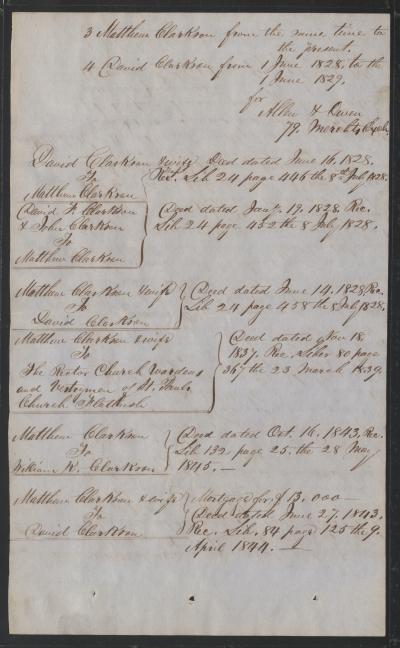 3 Matthew Clarkson from the same time to
the present.
4 David Clarkson from 1 June 1828, to the
1 June 1829.
for
Allen & Owen
79. Merchts Exch.
David Clarkson & wife Deed dated June 16. 1828.
To Rec. Lib 24 page 446 the 8th July 1828.
Matthew Clarkson
David F. Clarkson Deed dated Jany. 19. 1828. Rec.
& John Clarkson Lib 24 page 452 the 8 July 1828.
To
Matthew Clarkson
Matthew Clarkson & wife Deed dated June 14. 1828 Rec.
To Lib 24 page 458 the 8 July 1828.
David Clarkson
Matthew Clarkson & wife Deed dated Nov 18.
To 1837. Rec. Liber 80 page
The Rector Church Wardens 367 the 23 March 1839
and Vestrymen of St. Pauls
Church Flatbush
Matthew Clarkson Deed dated Oct. 16. 1843, Rec.
To Lib 132 page 25. the 28 May
William K. Clarkson 1845. —
Matthew Clarkson & wife Mortgage for $ 13,000 —
To Deed dated June 27. 1843.
David Clarkson Rec. Lib. 84 page 125 the 9.
April 1844. —